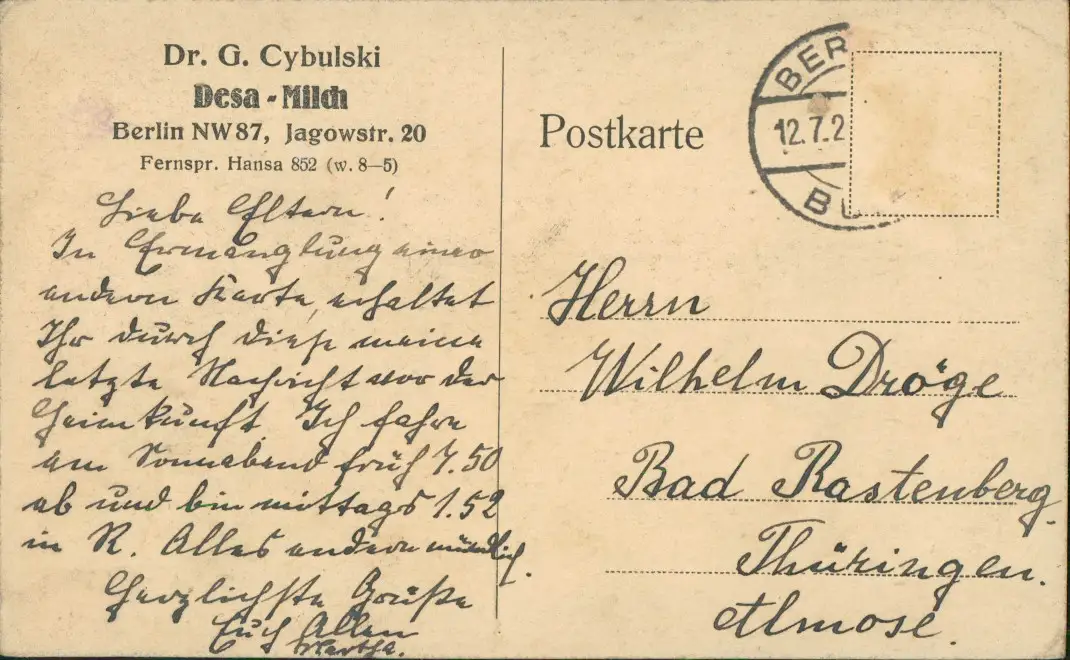 Dr. G. Cybulski
Desa-Milch
Berlin NW87, Jagowstr. 20
Fernspr. Hansa 852 (w. 8—5)
Liebe Eltern!
In Ermanglung einer
andern Karte, erhaltet
Ihr durch diese meine
letzte Nachricht vor der
Heimkunft. Ich fahre
am Sonnabend früh 7.50
ab und bin mittags 1.52
in R. Alles andere mündlich.
Herzlichste Grüße
Euch Allen
Martha.
Postkarte
BER
12.7.2
B
Herrn
Wilhelm Dröge
Bad Rastenberg.
Thüringen.
Almose.